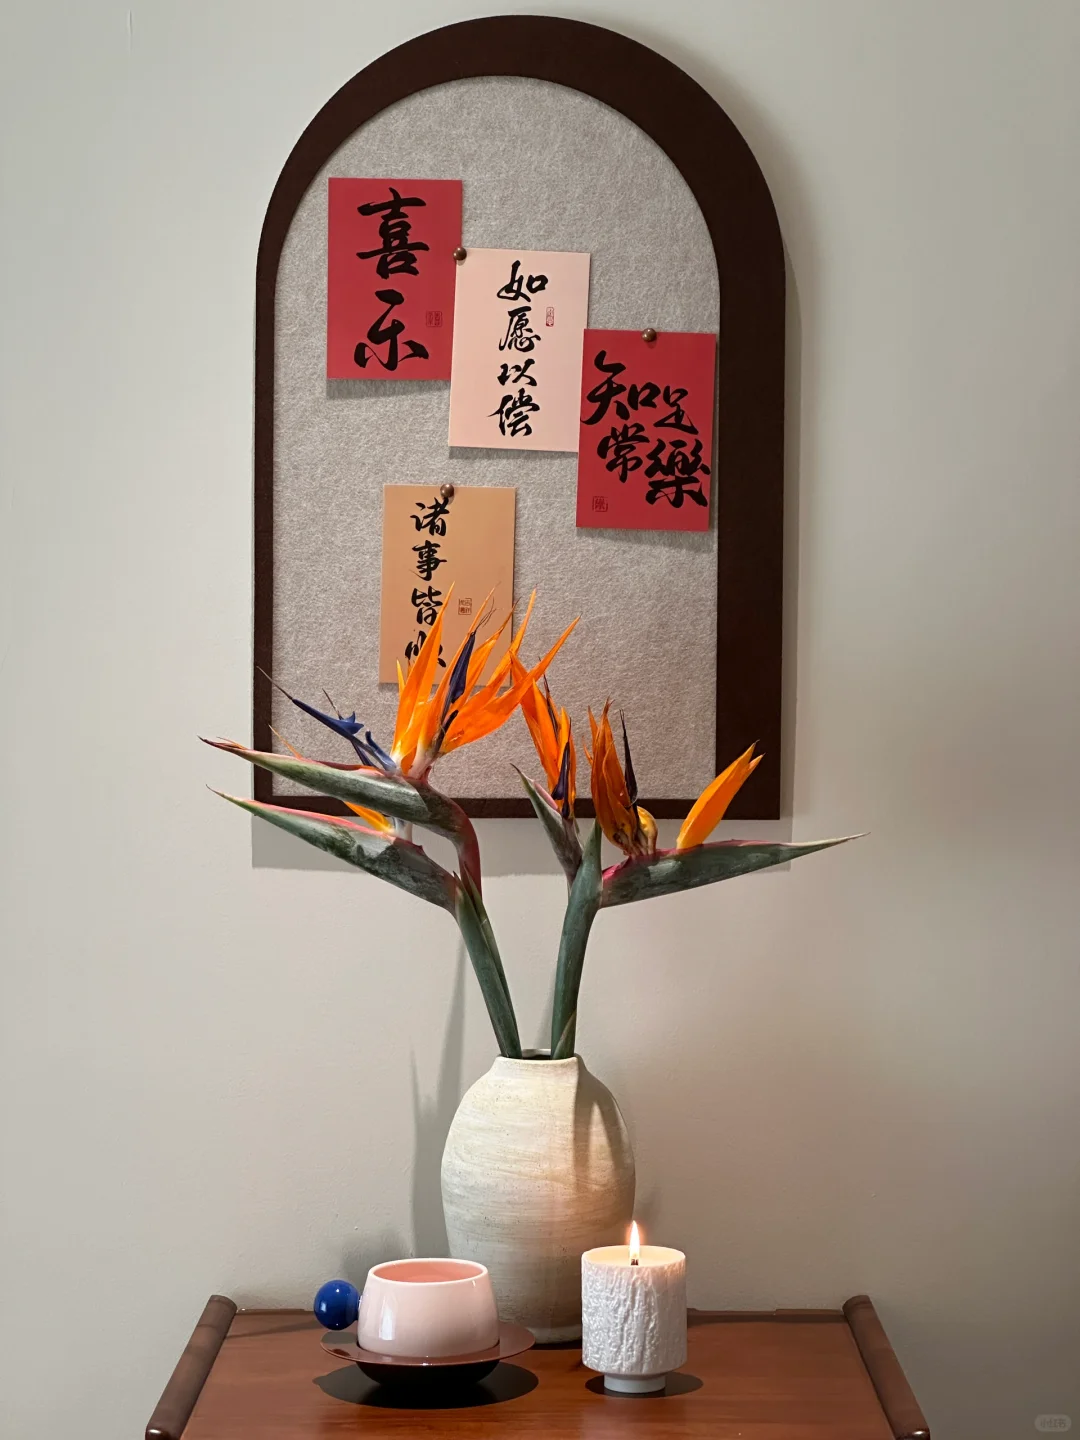 喜乐
如愿以偿
知足
常樂
诸事皆
小红书